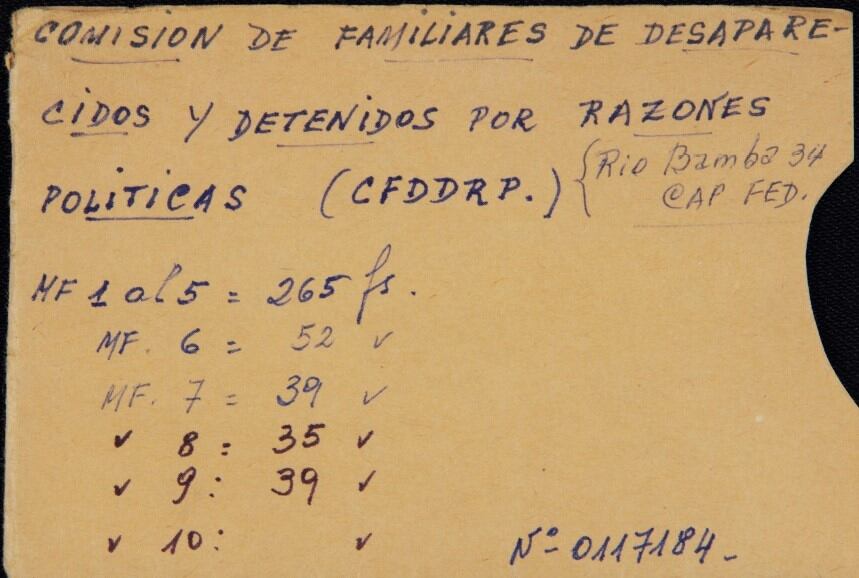 COMISION DE FAMILIARES DE DESAPARE-
CIDOS Y DETENIDOS POR RAZONES
POLITICAS (CFDDRP.) { Rio Bamba 34
CAP FED.
MF 1 al 5 = 265 fs.
MF. 6 = 52 ✓
MF. 7 = 39 ✓
✓ 8 : 35 ✓
✓ 9 : 39 ✓
✓ 10 : ✓
Nº 0117184_